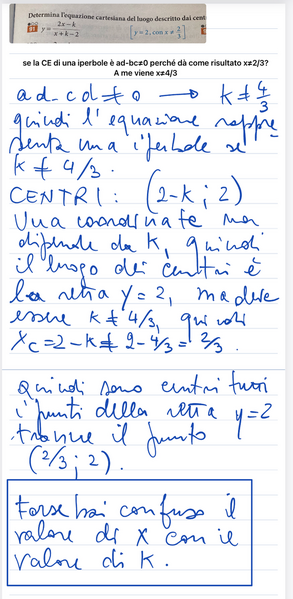 Determina l'equazione cartesiana del luogo descritto dai cent
y = (2x - k)/(x + k - 2) [y = 2, con x ≠ 2/3]
se la CE di una iperbole è ad-bc≠0 perché dà come risultato x≠2/3?
A me viene x≠4/3
ad-cd≠0 → k≠4/3
quindi l'equazione rappre
senta una iperbole se
k ≠ 4/3.
CENTRI: (2-k; 2)
Una coordinata non
dipende da k, quindi
il luogo dei centri è
la retta y=2, ma deve
essere k≠4/3, quindi
xc=2-k≠2-4/3=2/3.
Quindi sono centri tutti
i punti della retta y=2
tranne il punto
(2/3; 2).
Forse hai confuso il
valore di x con il
valore di k.